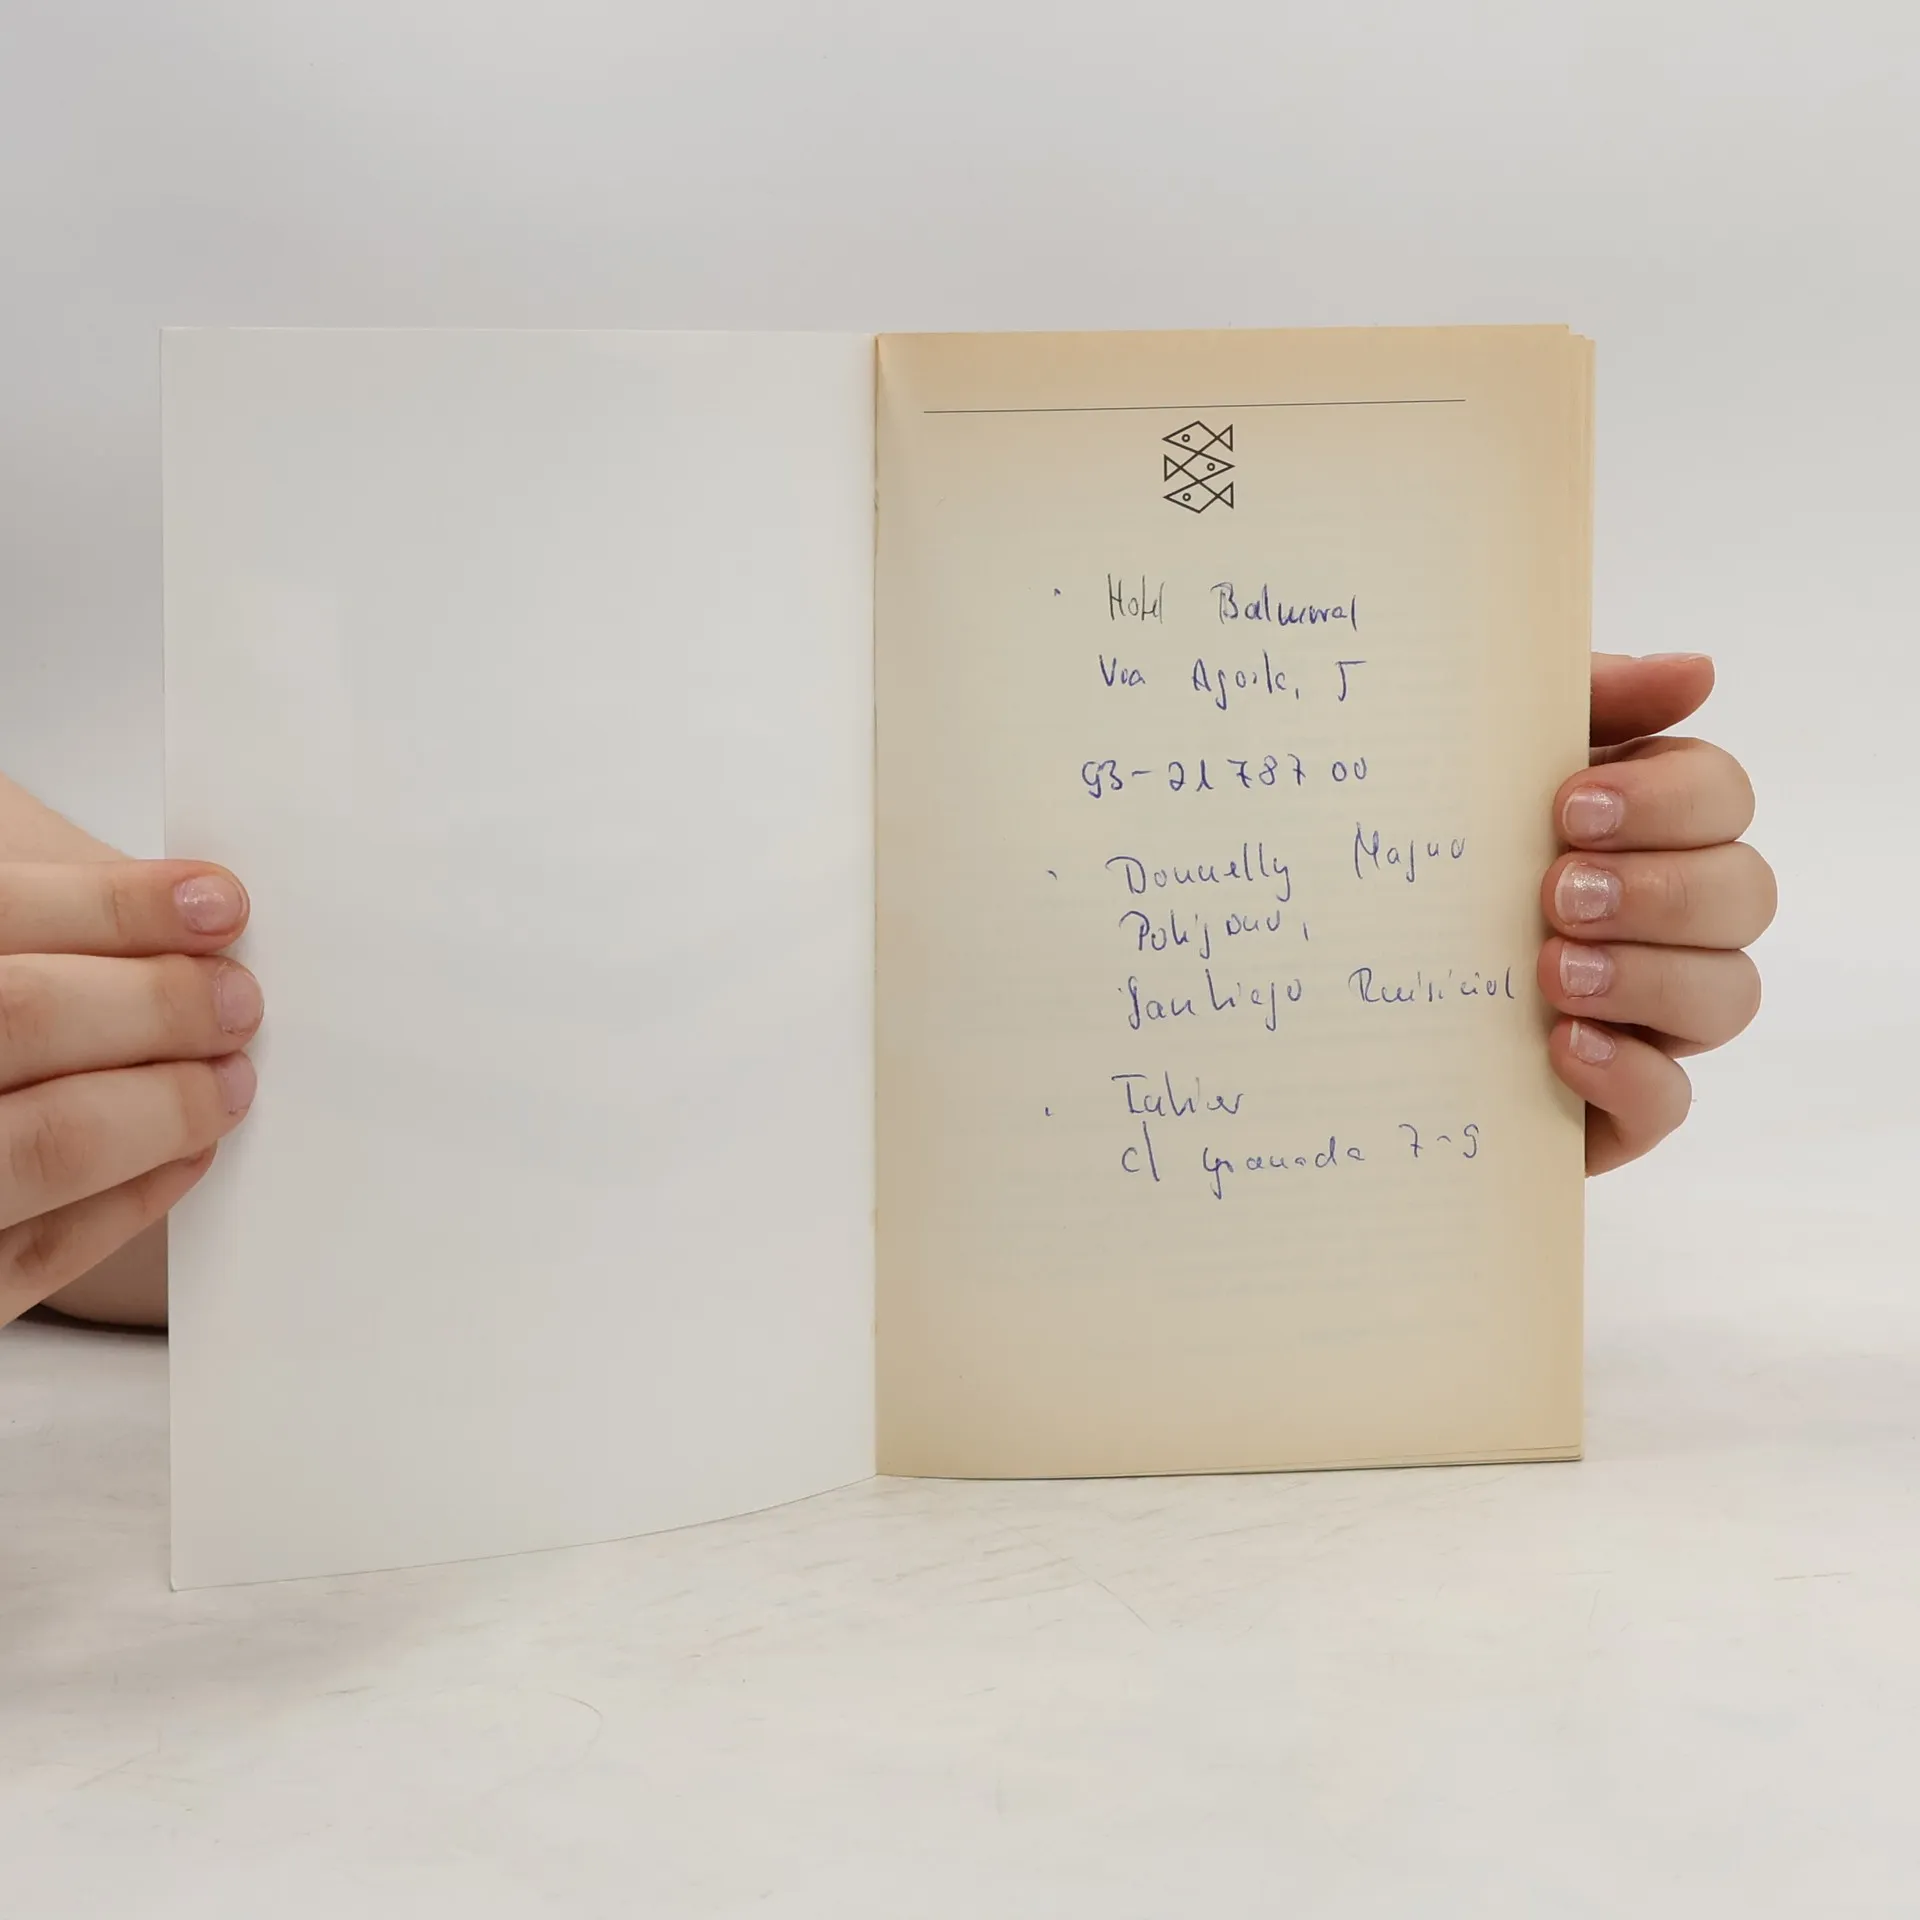 Hotel Balmoral
Via Agosta, 5
93-21 787 00
Donnelly Magno
Santiago Rusiñol
c/ Granada 7-9